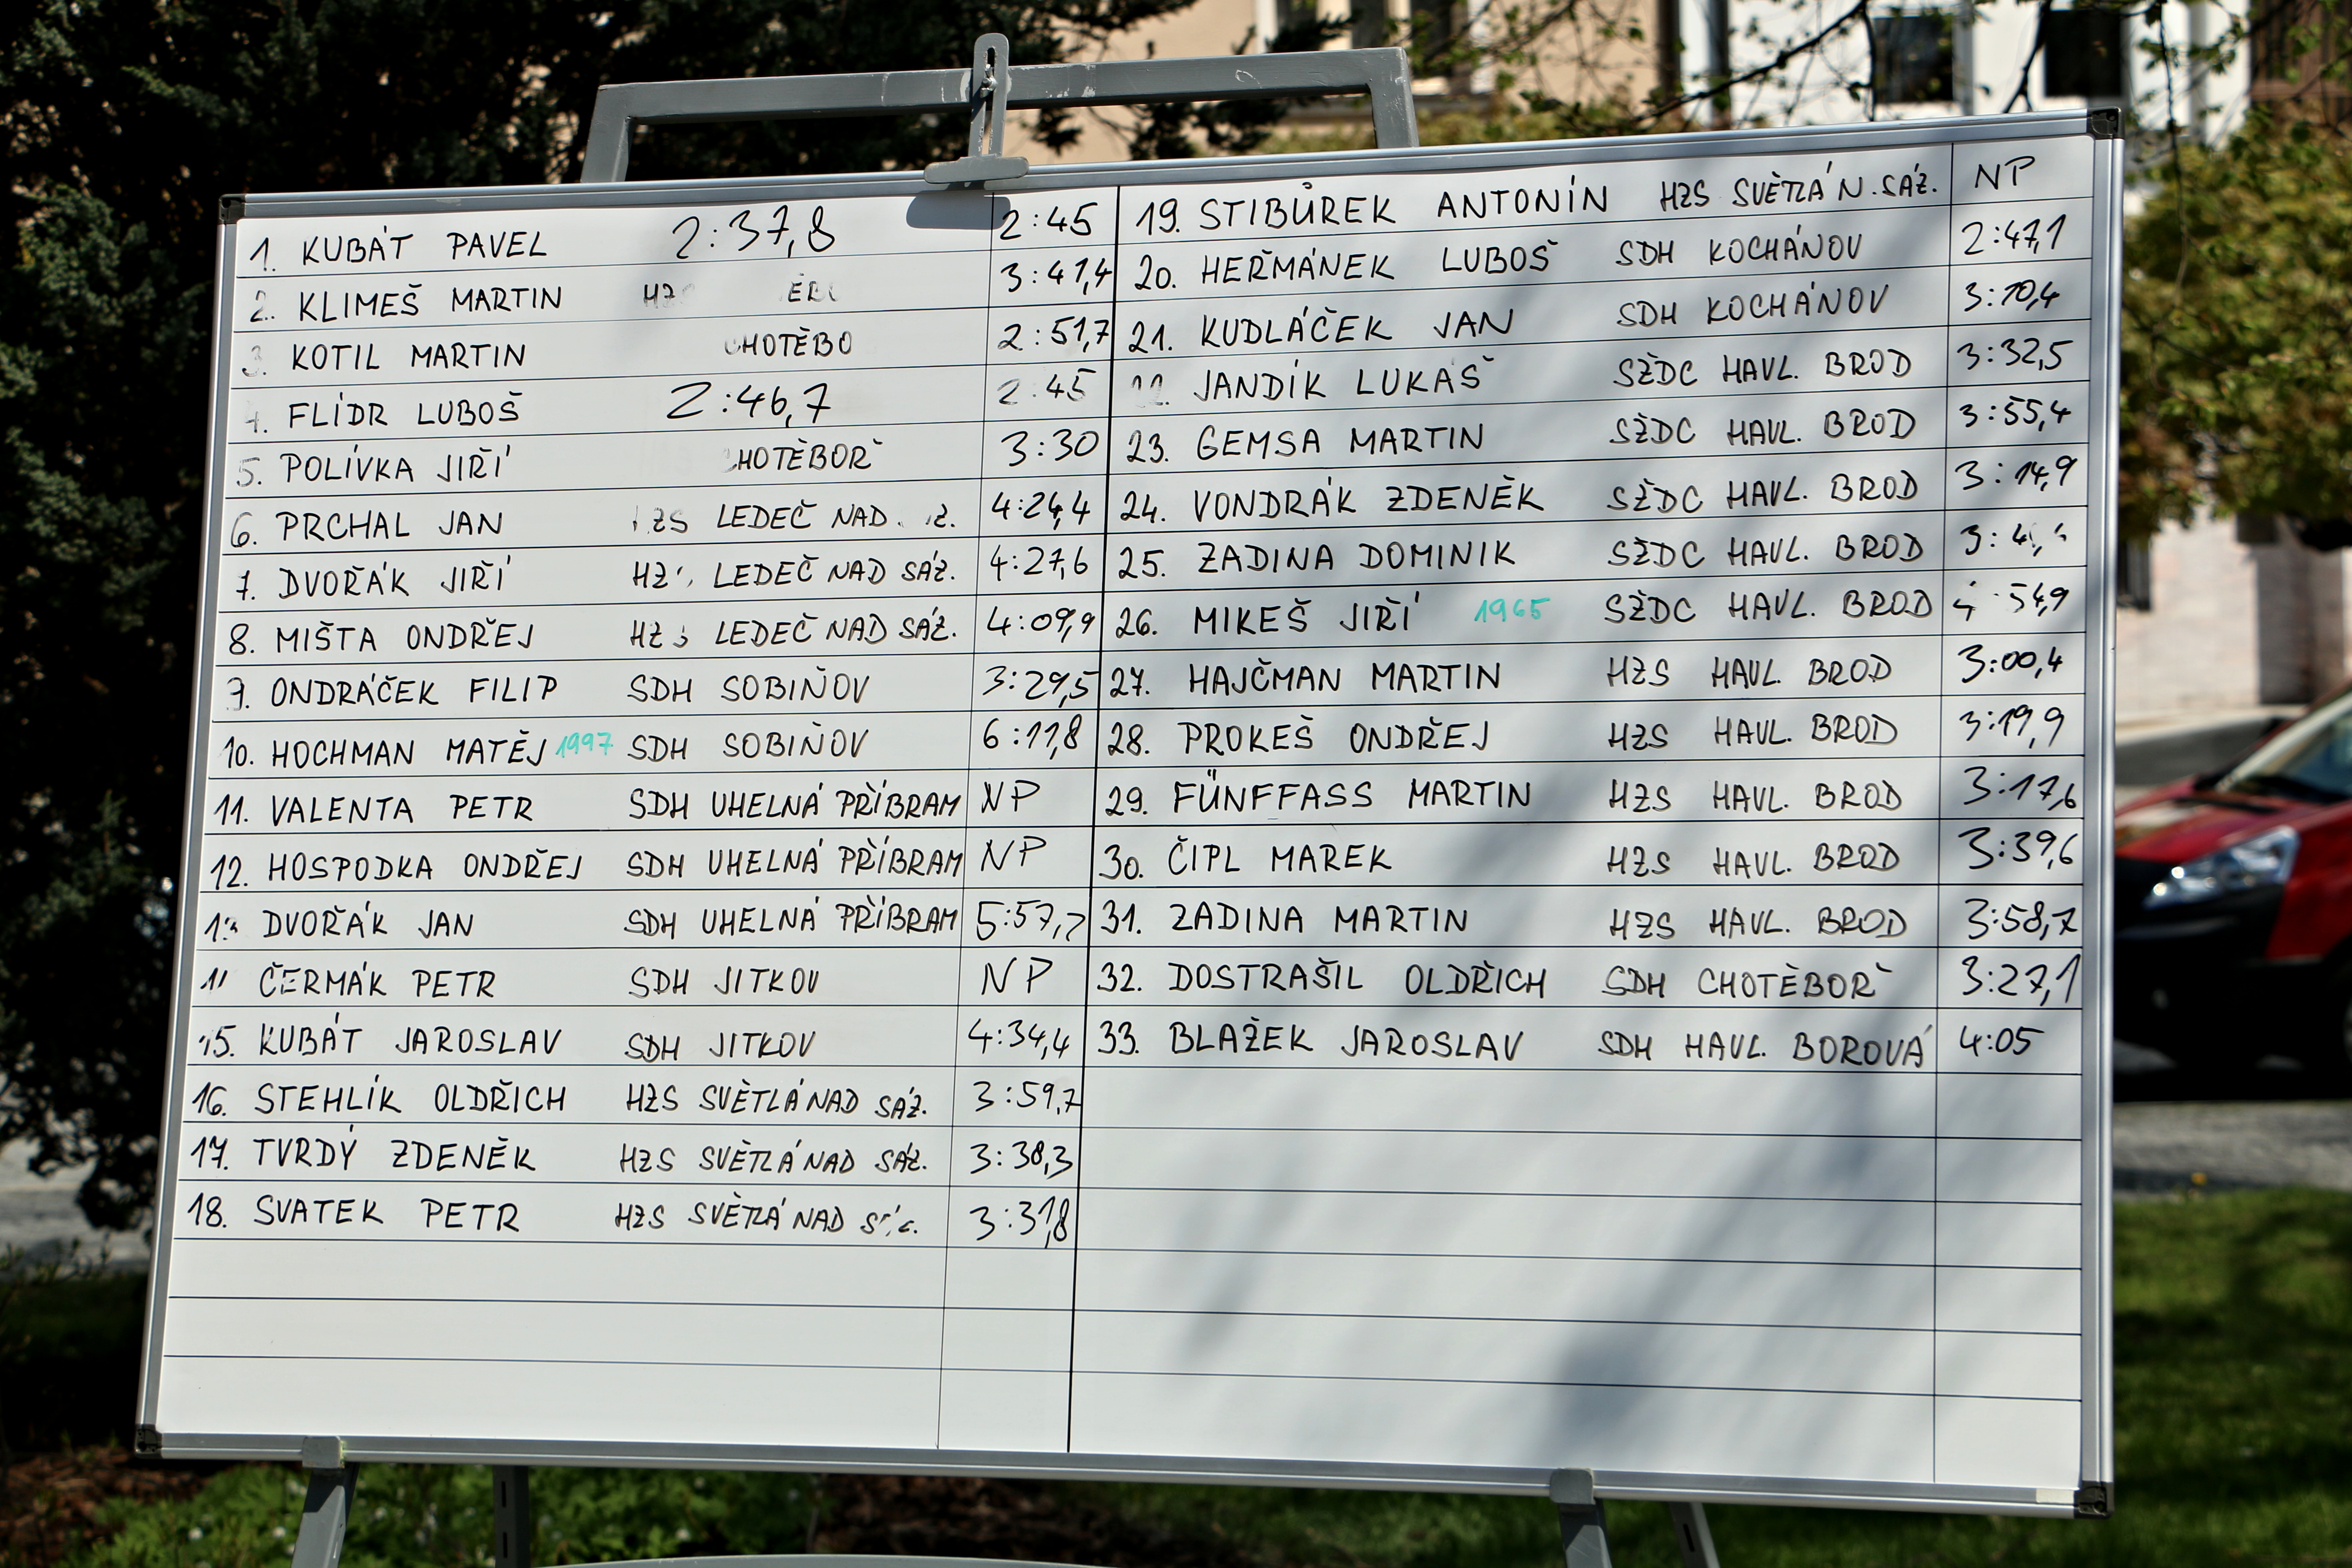 1. KUBÁT PAVEL 2:37,8 2:45
2. KLIMEŠ MARTIN 3:41,4
3. KOTIL MARTIN 2:51,7
4. FLÍDR LUBOŠ 2:46,7 2:45
5. POLÍVKA JIŘÍ 3:30
6. PRCHAL JAN LEDEČ NAD 4:24,4
7. DVOŘÁK JIŘÍ LEDEČ NAD SÁZ. 4:27,6
8. MIŠTA ONDŘEJ LEDEČ NAD SÁZ. 4:09,9
9. ONDRÁČEK FILIP SDH SOBIŇOV 3:29,5
10. HOCHMAN MATĚJ 1997 SDH SOBIŇOV 6:11,8
11. VALENTA PETR SDH UHELNÁ PŘÍBRAM NP
12. HOSPODKA ONDŘEJ SDH UHELNÁ PŘÍBRAM NP
DVOŘÁK JAN SDH UHELNÁ PŘÍBRAM
ČERMÁK PETR SDH JITKOV NP
15. KUBÁT JAROSLAV SDH JITKOV 4:34,4
16. STEHLÍK OLDŘICH HZS SVĚTLÁ NAD SÁZ. 3:59,7
17. TVRDÝ ZDENĚK HZS SVĚTLÁ NAD SÁZ. 3:38,3
18. SVATEK PETR HZS SVĚTLÁ NAD 3:31,8
19. STIBŮREK ANTONÍN HZS SVĚTLÁ N. SÁZ. NP
20. HEŘMÁNEK LUBOŠ SDH KOCHÁNOV 2:47,1
21. KUDLÁČEK JAN SDH KOCHÁNOV 3:10,4
JANDÍK LUKÁŠ SŽDC HAVL. BROD 3:32,5
23. GEMSA MARTIN SŽDC HAVL. BROD 3:55,4
24. VONDRÁK ZDENĚK SŽDC HAVL. BROD 3:14,9
25. ZADINA DOMINIK SŽDC HAVL. BROD
26. MIKEŠ JIŘÍ 1965 SŽDC HAVL. BROD
27. HAJČMAN MARTIN HZS HAVL. BROD 3:00,4
28. PROKEŠ ONDŘEJ HZS HAVL. BROD 3:19,9
29. FÜNFFASS MARTIN HZS HAVL. BROD 3:17,6
30. ČIPL MAREK HZS HAVL. BROD 3:39,6
31. ZADINA MARTIN HZS HAVL. BROD 3:58,7
32. DOSTRAŠIL OLDŘICH SDH CHOTĚBOŘ 3:27,1
33. BLAŽEK JAROSLAV SDH HAVL. BOROVÁ 4:05